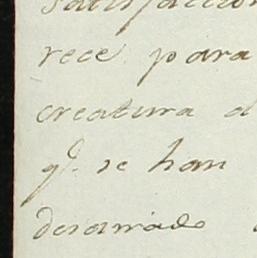 satisfaccion
rece para
creatura d
q.e se han
desarviado